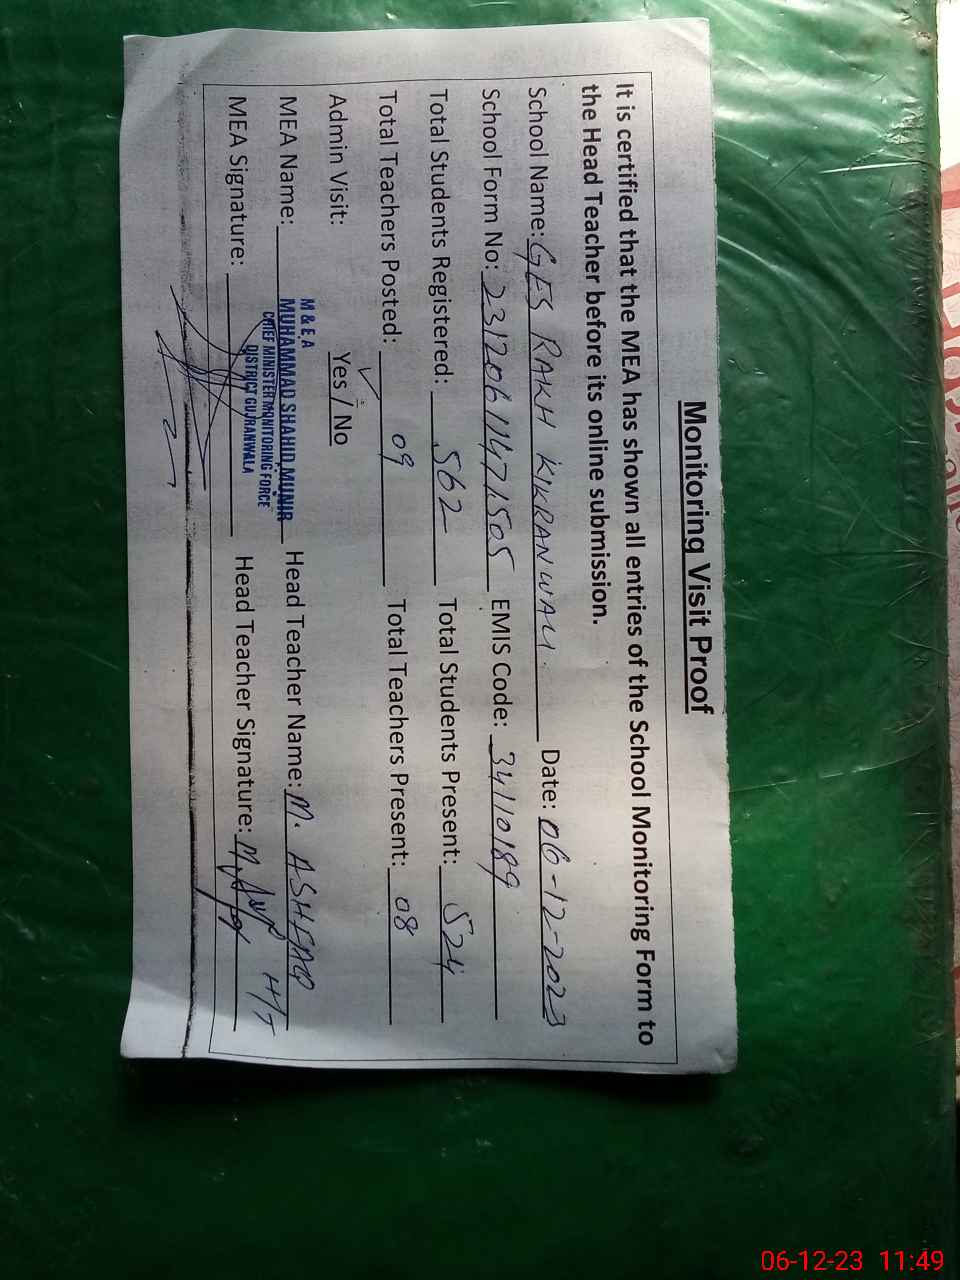 Monitoring Visit Proof
It is certified that the MEA has shown all entries of the School Monitoring Form to
the Head Teacher before its online submission.
School Name: GES RAKH KIKRANWALI. Date: 06-12-2023
School Form No: 23120611471505 EMIS Code: 34110189
Total Students Registered: 562 Total Students Present: 524
Total Teachers Posted: 09 Total Teachers Present: 08
Admin Visit: Yes / No
M & E A
MEA Name: MUHAMMAD SHAHID MUNIR Head Teacher Name: M. ASHFAQ
CHIEF MINISTER MONITORING FORCE
DISTRICT GUJRANWALA
MEA Signature: Head Teacher Signature: H/T
06-12-23 11:49